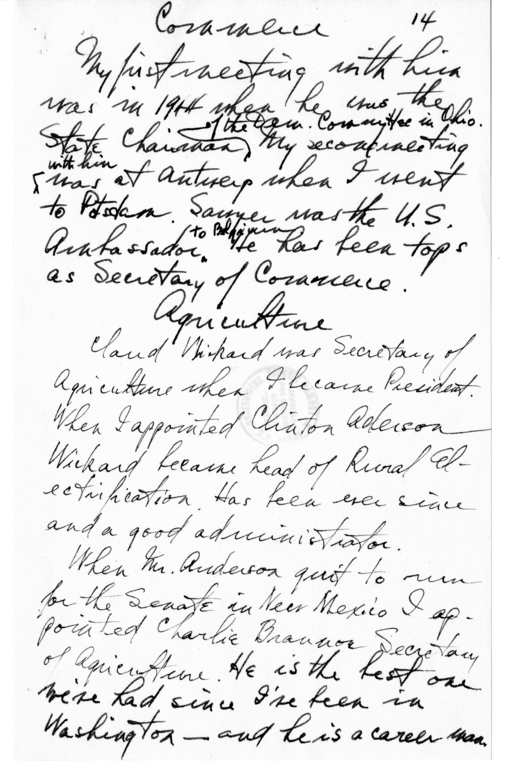 Commerce 14
My first meeting with him
was in 1944 when he was the
of the Dem. Committee in Ohio.
State Chairman, My second meeting
with him
was at Antwerp when I went
to Potsdam. Sawyer was the U.S.
to Belgium
Ambassador. He has been tops
as Secretary of Commerce.
Agriculture
Claud Wickard was Secretary of
Agriculture when I became President.
When I appointed Clinton Aderson
Wickard became head of Rural El-
ectrification. Has been ever since
and a good administrator.
When Mr. Anderson quit to run
for the Senate in New Mexico I ap-
pointed Charlie Brannon Secretary
of Agriculture. He is the best one
we've had since I've been in
Washington — and he is a career man.